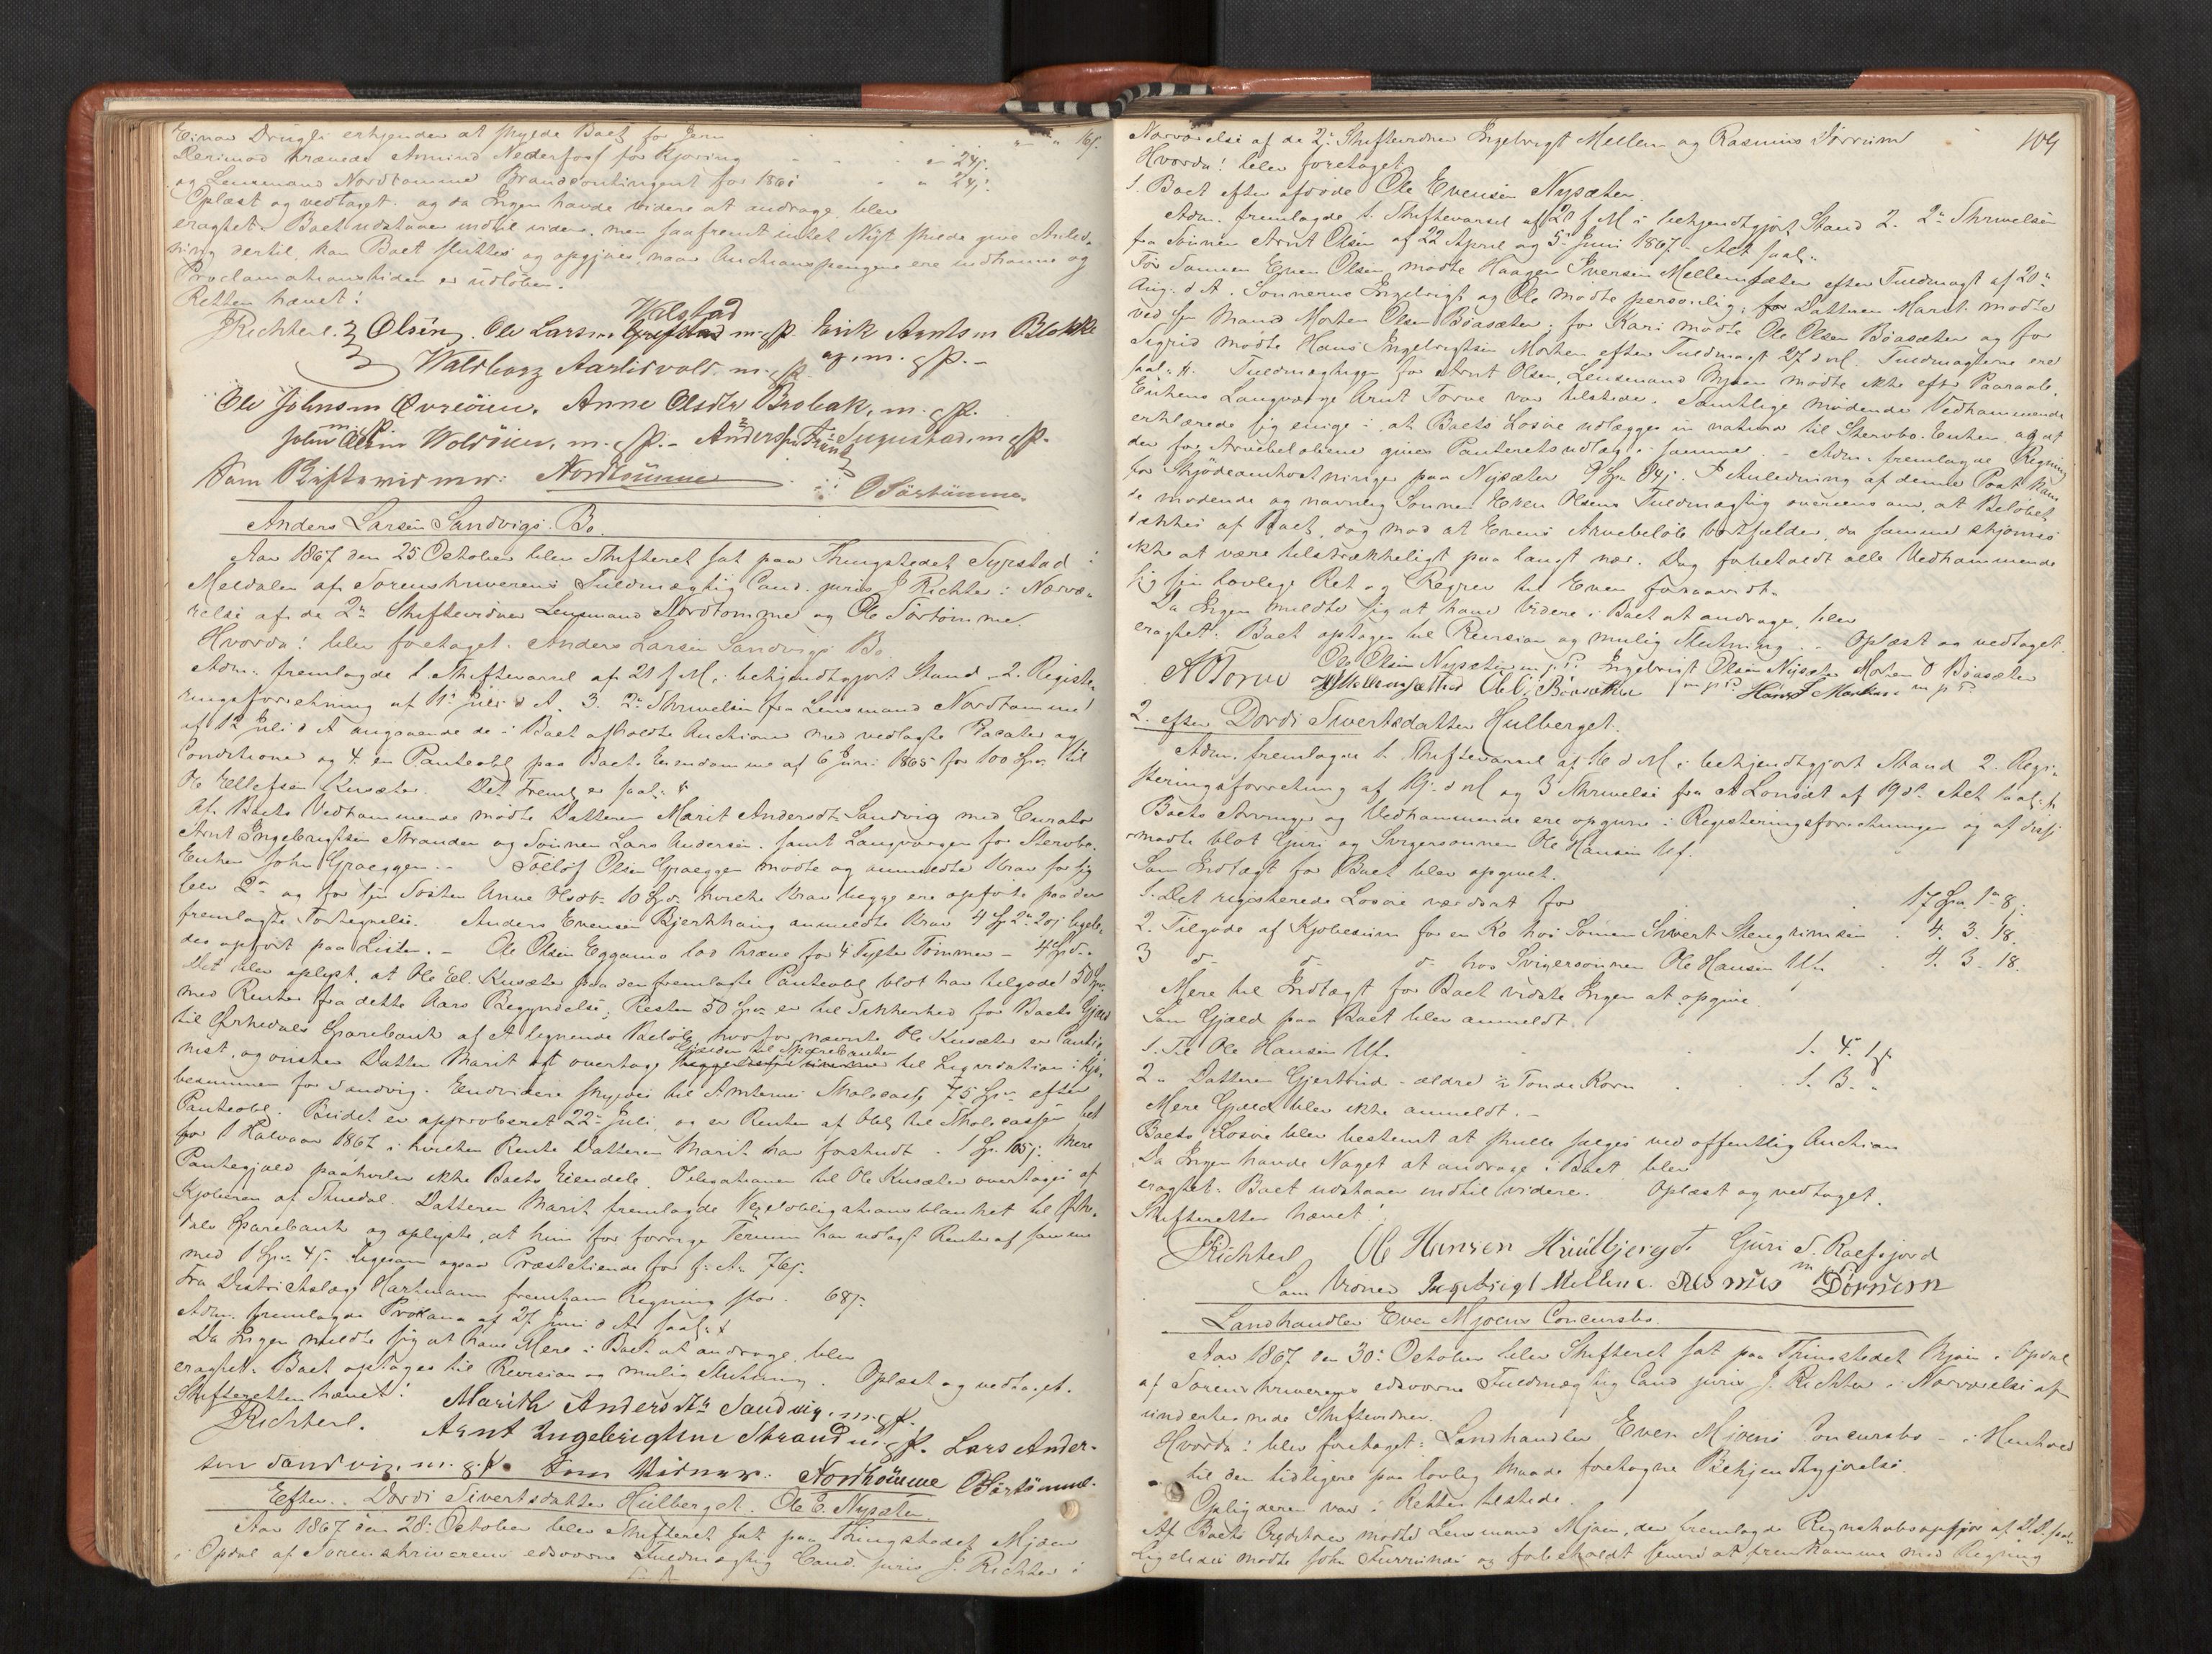 Einar Drugli erkjender at skylde Boet for Jern " " 16ſ.
Derimod krævede Amund Nederfoss for Kjøring - - - " 24ſ.
og Lensmand Nordtømme Brandcontingent for 1861 - " 24ſ.
Oplæst og vedtaget. og da Ingen havde videre at andrage, blev
eragtet: Boet udstaaer indtil videre, men saafremt intet Nyt skulde give Anled-
ning dertil, kan Boet sluttes og opgjøres, naar Auctionspengene ere indkomne og
Proclamationstiden er udløben.
Retten hævet!
Walstad
JRichter. Olsen. Ole Larsen m. f. P. Erik Arntsen Blokke
Waldborg Aarlivold. m. f. P. m. f. P. -
Ole Johnsen Øvreøien. Anne Olsdtr Brobak, m. f. P.
John Olsen Woldøien. m. f. P. - Anders m. f. P.
Som Skiftevidner: Nordtømme OSørtømme.
Anders Larsen Sandvigs Bo.
Aar 1867 den 25 October blev Skifteret sat paa Thingstedet Syrstad i
Meldalen af Sorenskriverens Fuldmægtig Cand. juris J Richter i Nærvæ-
relse af de 2de Skiftevidner Lensmand Nordtømme og Ole Sørtømme.
Hvorda! blev foretaget Anders Larsen Sandvigs Bo.
Adm. fremlagde 1 Skiftevarsel af 21 f M. i bekjendtgjort Stand - 2. Registe-
ringsforretning af 11te Juli d A. 3. 2de Skrivelser fra Lensmand Nordtømme
af 12 Juli d A angaaende de i Boet afholdte Auctioner med vedlagte Placater og
Conditioner og 4. en Panteobl. paa Boets Eiendomme af 6 Juni 1865 for 100 Spd. til
Ole Ellefsen Kusæter. Det Freml. er saal:
Af Boets Vedkommende mødte Datteren Marit Andersdt. Sandvig med Curator
Arnt Ingebrigtsen Stranden og Sønnen Lars Andersen. samt Laugværgen for Stervbo-
Enken John Graeggen. - Tollof Olsen Graeggen mødte og anmeldte Krav for sig
og for sin Søster Anne Olsdt. 10 Spd. hvilke Krav begge ere opførte paa den
fremlagte Fortegnelse. Anders Evensen Bjerkhaug anmeldte Krav 4 Sp 2 # 20ſ ligele-
des opført paa Listen. - Ole Olsen Eggamo lod kræve for 4 Tylter Tømmer - 4 Spd. -
Det blev oplyst, at Ole El. Kusæter paa den fremlagte Panteobl. blot har tilgode 50 Spd.
med Renter fra dette Aars Begyndelse; Resten 50 Spd. er til Sikkerhed for Boets Gjæld
til Ørkedals Sparebank af et lignende Beløb, hvorfor nævnte Ole Kusæter er Cautio-
nist, og ønsker Datter Marit at overtage Gjælden til Sparebanken til Liquidation i Kjø-
besummen for Sandvig. Endvidere skyldes til Amtets Skolecasse 75 Spd. efter
Panteobl. Budet er approberet 22de Juli, og er Renten af Obl. til Skolecassen bet.
for 1 Halvaar 1867 i hvilken Rente Datteren Marit har forskudt - 1 Sp. 105ſ. Mere
Pantegjæld paahviler ikke Boets Eiendele. Obligationen til Ole Kusæter overtages af
Kjøberen af Skuedal. Datteren Marit fremlagde Vexelobligationsblanket til Ørke-
dals Sparebank og oplyste, at hun for forrige Termin har udlagt Renter af samme
med 1 Spd. 4ſ. ligesom ogsaa Præstetiende for f. A. 76ſ.
Fra Districtslæge Hartmann fremkom Regning stor - 68ſ.
Adm. fremlagde Proclama af 27 Juni d A. saal:
Da Ingen meldte sig at have Mere i Boet at andrage, blev
eragtet: Boet optages til Revision og mulig Slutning. Oplæst og vedtaget.
Skifteretten hævet!
JRichter. Marith Andersdtr Sandvig. m. f. P.
Arnt Ingebrigtsen Strand m f P. Lars Ander-
sen Sandvig. m. f. P. Som Vidner: Nordtømme OSørtømme.
Efter. Dordi Sivertsdatter Hulberget. Ole E. Nysæter.
Aar 1867 den 28: October blev Skifteret sat paa Thingstedet Mjøen
i Opdal af Sorenskriverens edsvorne Fuldmægtig Cand. juris J. Richter i
109
Nærværelse af de 2de Skiftevidner Ingebrigt Mellem og Rasmus Dørrum
Hvorda! blev foretaget
1. Boet efter afdøde Ole Evensen Nysæter
Adm. fremlagde 1. Skiftevarsel af 21 f M. i bekjendtgjort Stand 2. 2de Skrivelser
fra Sønnen Arnt Olsen af 22 April og 5te Juni 1867 - Alt saal:
For Sønnen Even Olsen mødte Haagen Iversen Mellemsæter efter Fuldmagt af 20de
Aug. d A. Sønnerne Ingebrigt og Ole mødte personlig; for Datteren Marit mødte
ved sin Mand Morten Olsen Bøasæter; for Kari mødte Ole Olsen Bøasæter og for
Sigrid mødte Hans Ingebrigtsen Morken efter Fuldmagt 27 d M. Fuldmagterne ere
saal: Fuldmægtigen for Arnt Olsen, Lensmand Mjøen mødte ikke efter Paaraab.
Enkens Laugværge Arnt Torve var tilstede. Samtlige mødende Vedkommende
erklærede sig enige i, at Boets Løsøre udlægges in natura til Stervbo-Enken, og at
der for Arvebeløbene gives Panteretsudlæg i samme. - Adm. fremlagde Regning
for Skjødeomkostninger paa Nysæter 9 Sp. 84ſ. I Anledning af denne Post kom
de mødende og navnlig Sønnen Even Olsens Fuldmægtig overeens om, at Beløbet
dækkes af Boet, dog mod at Evens Arvebeløb bortfalder, da samme skjønnes
ikke at være tilstrækkeligt paa langt nær. Dog forbeholdt alle Vedkommende
sig sin lovlige Ret og Regres til Even forsaavidt.
Da Ingen meldte sig at have Videre i Boet at andrage, blev
eragtet: Boet optages til Revision og mulig Slutning. - Oplæst og vedtaget.
A O Torve Ole Olsen Nysæter m. p. P. Ingebrigt Olsen Nysæter Morten O Bøasæter
HIMellemsæther Ole O. Bøasæther m p P. Hans I Morken m p P
2. efter Dordi Sivertsdatter Hulberget.
Adm. fremlagde 1. Skiftevarsel af 16 d M. i bekjendtgjort Stand 2. Regi-
streringsforretning af 19. d M og 3 Skrivelse fra A Lonsæt af 19 ds. Alt saal:
Boets Arvinger og Vedkommende ere opgivne i Registreringsforretningen og af disse
mødte blot Guri og Svigersønnen Ole Hansen Uf.
Som Indtægt for Boet blev opgivet.
1. Det registrerede Løsøre værdsat for - 17 Spd 1 # 8ſ.
2. Tilgode af Kjøbesum for en Ko hos Sønnen Sivert Stengrimsen - 4. 3. 18.
3 do do do hos Svigersønnen Ole Hansen Uf. - 4. 3. 18.
Mere til Indtægt for Boet vidste Ingen at opgive.
Som Gjæld paa Boet blev anmeldt.
1. Til Ole Hansen Uf. - 1. 4.
2 " Datteren Gjertrud - ældre ½ Tønde Korn - 1. 3. "
Mere Gjæld blev ikke anmeldt. -
Boets Løsøre blev bestemt at skulle sælges ved offentlig Auction
Da Ingen havde Noget at andrage i Boet blev
eragtet: Boet udstaaer indtil videre. Oplæst og vedtaget.
Skifteretten hævet!
JRichter Ole Hansen Huulbjerget Guri S. Ralfsjord
m P
Som Vidner Ingebrigt Mellem. Rasmus Dørrum
Landhandler Even Mjøens Concursbo.
Aar 1867 den 30: October blev Skifteret sat paa Thingstedet Mjøen i Opdal
af Sorenskriverens edsvorne Fuldmægtig Cand juris J. Richter i Nærværelse af
undertegnede Skiftevidner.
Hvorda! blev foretaget: Landhandler Even Mjøens Concursbo - i Henhold
til den tidligere paa lovlig Maade foretagne Bekjendtgjørelse.
Opbyderen var i Retten tilstede.
Af Boets Creditorer mødte Lensmand Mjøen, der fremlagde Regnskabsopgjør af D.D. saal:
Ligeledes mødte John og forbeholdt senere at fremkomme med Regning